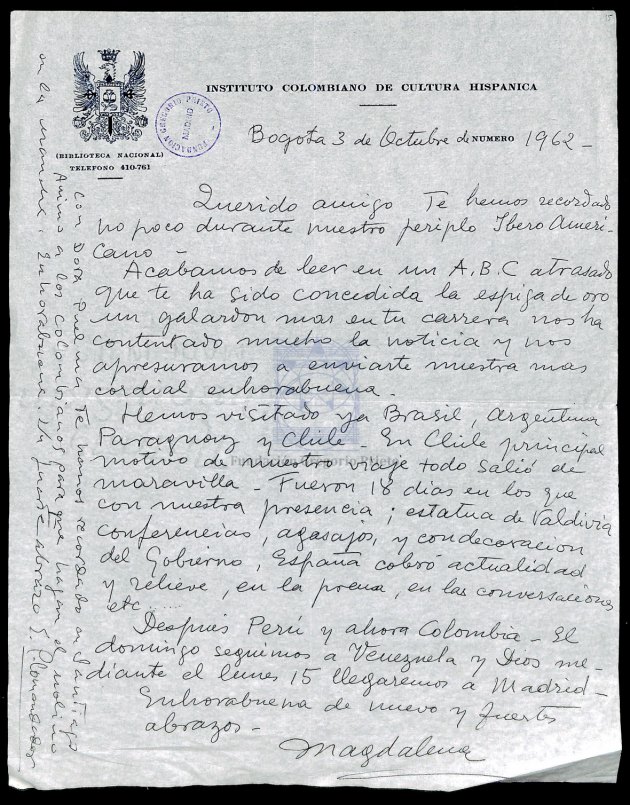 INSTITUTO COLOMBIANO DE CULTURA HISPANICA
(BIBLIOTECA NACIONAL)
TELEFONO 410-761
FUNDACION GREGORIO PRIETO
MADRID
Bogota 3 de Octubre de NUMERO 1962 -
Querido amigo Te hemos recordado
no poco durante nuestro periplo Ibero Ameri-
cano -
Acabamos de leer en un A.B.C atrasado
que te ha sido concedida la espiga de oro
un galardon mas en tu carrera nos ha
contentado mucho la noticia y nos
apresuramos a enviarte nuestra mas
cordial enhorabuena.
Hemos visitado ya Brasil, Argentina
Paraguay y Chile - En Chile principal
motivo de nuestro viaje todo salió de
maravilla - Fueron 18 dias en los que
con nuestra presencia; estatua de Valdivia
conferencias, agasajos, y condecoracion
del Gobierno, España cobró actualidad
y relieve, en la prensa, en las conversaciones
etc.....
Después Perú y ahora Colombia - El
domingo seguimos a Venezuela y Dios me-
diante el lunes 15 llegaremos a Madrid -
Enhorabuena de nuevo y fuertes
abrazos -
Magdalena
con Dora Te hemos recordado en Santiago
Animo a los colombianos para que hagan el molino
en la mancha. Enhorabuena. Un fuerte abrazo
Fundación Gregorio Prieto